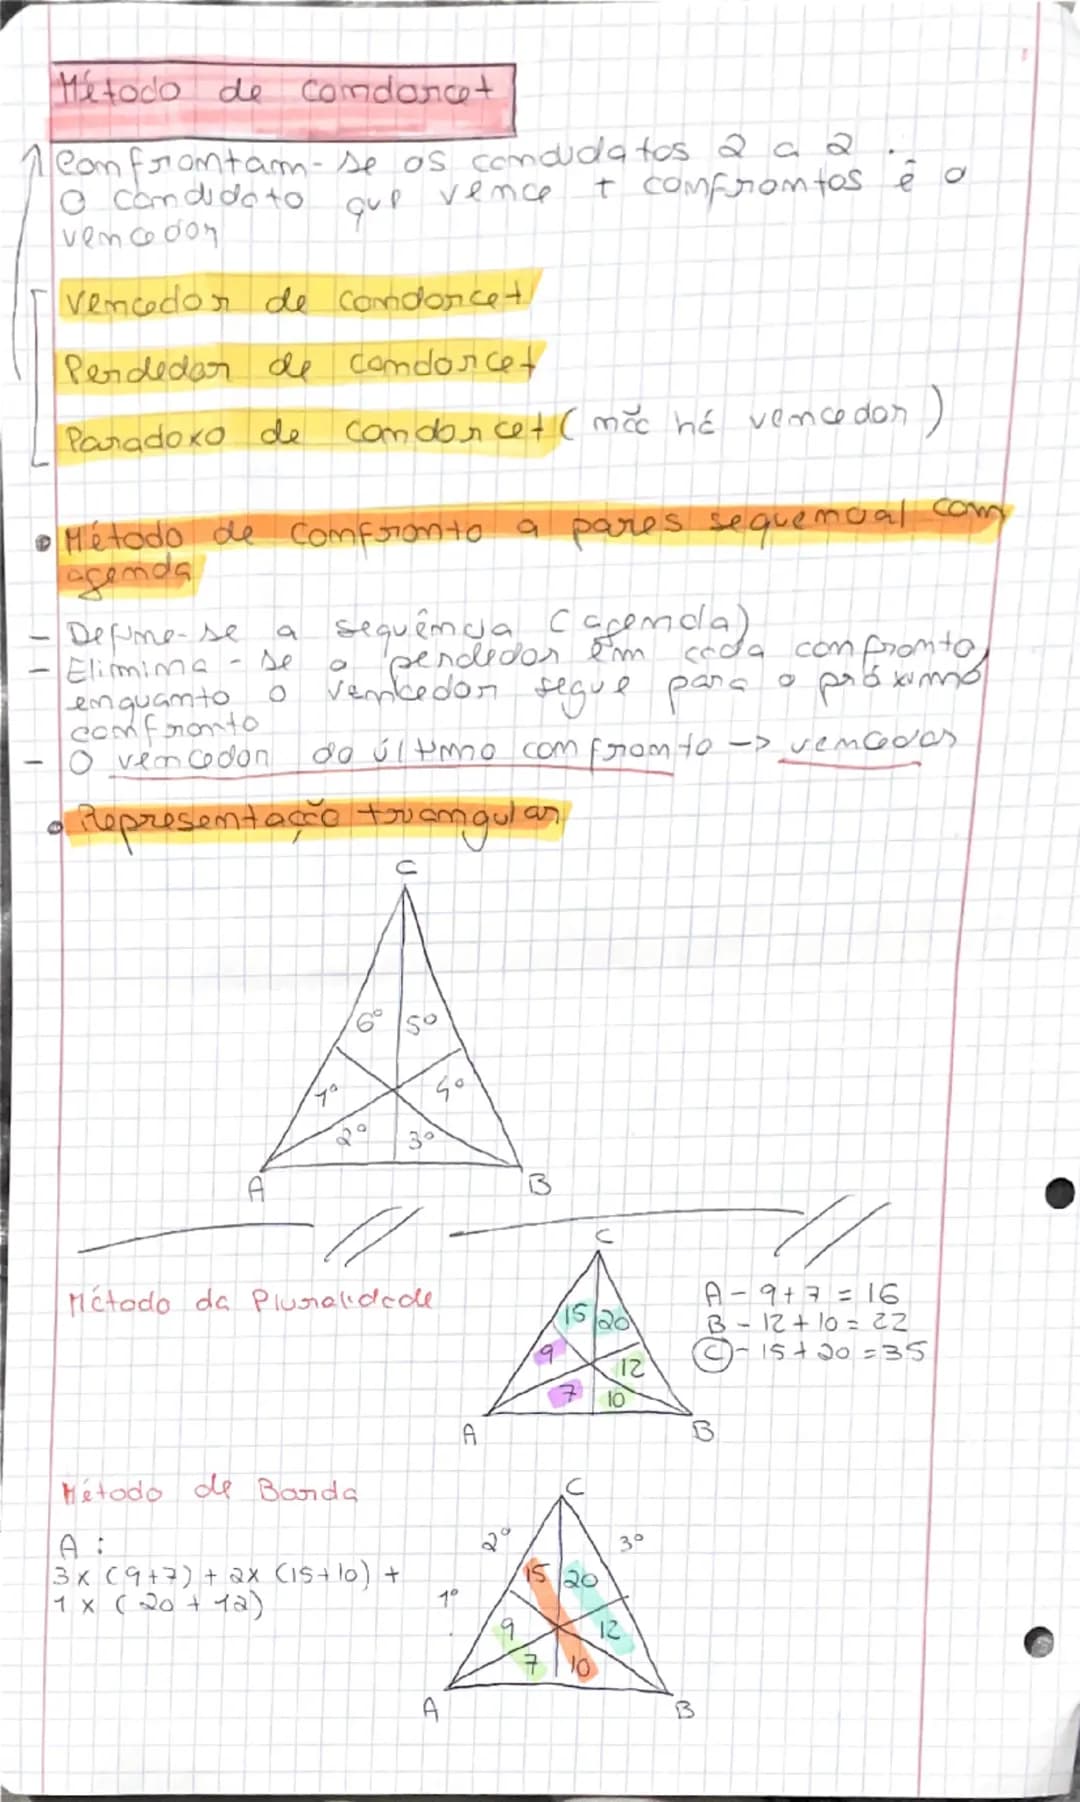 Método de Condorcet
Confrontam-se os candidatos 2 a 2.
O candidato que vence + confrontos é o
vencedor
Vencedor de Condorcet
Perdedor de Condorcet
Paradoxo de Condorcet (não há vencedor)
• Método de Confronto a pares sequencial com
agenda
- Define-se a sequência (agenda)
- Elimina-se o perdedor em cada confronto,
enquanto o vencedor segue para o próximo
confronto
- O vencedor do último confronto -> vencedor
• Representação triangular
C
6º 5º
1º 4º
2º 3º
A B
C
Método da Pluralidade
15 20
9 12
7 10
A B
A - 9+7 = 16
B - 12+10 = 22
C - 15+20 = 35
Método de Borda
A:
3x (9+7) + 2x (15+10) +
1 x (20 + 12)
C
2º 3º
15 20
1º
9 12
7 10
A B